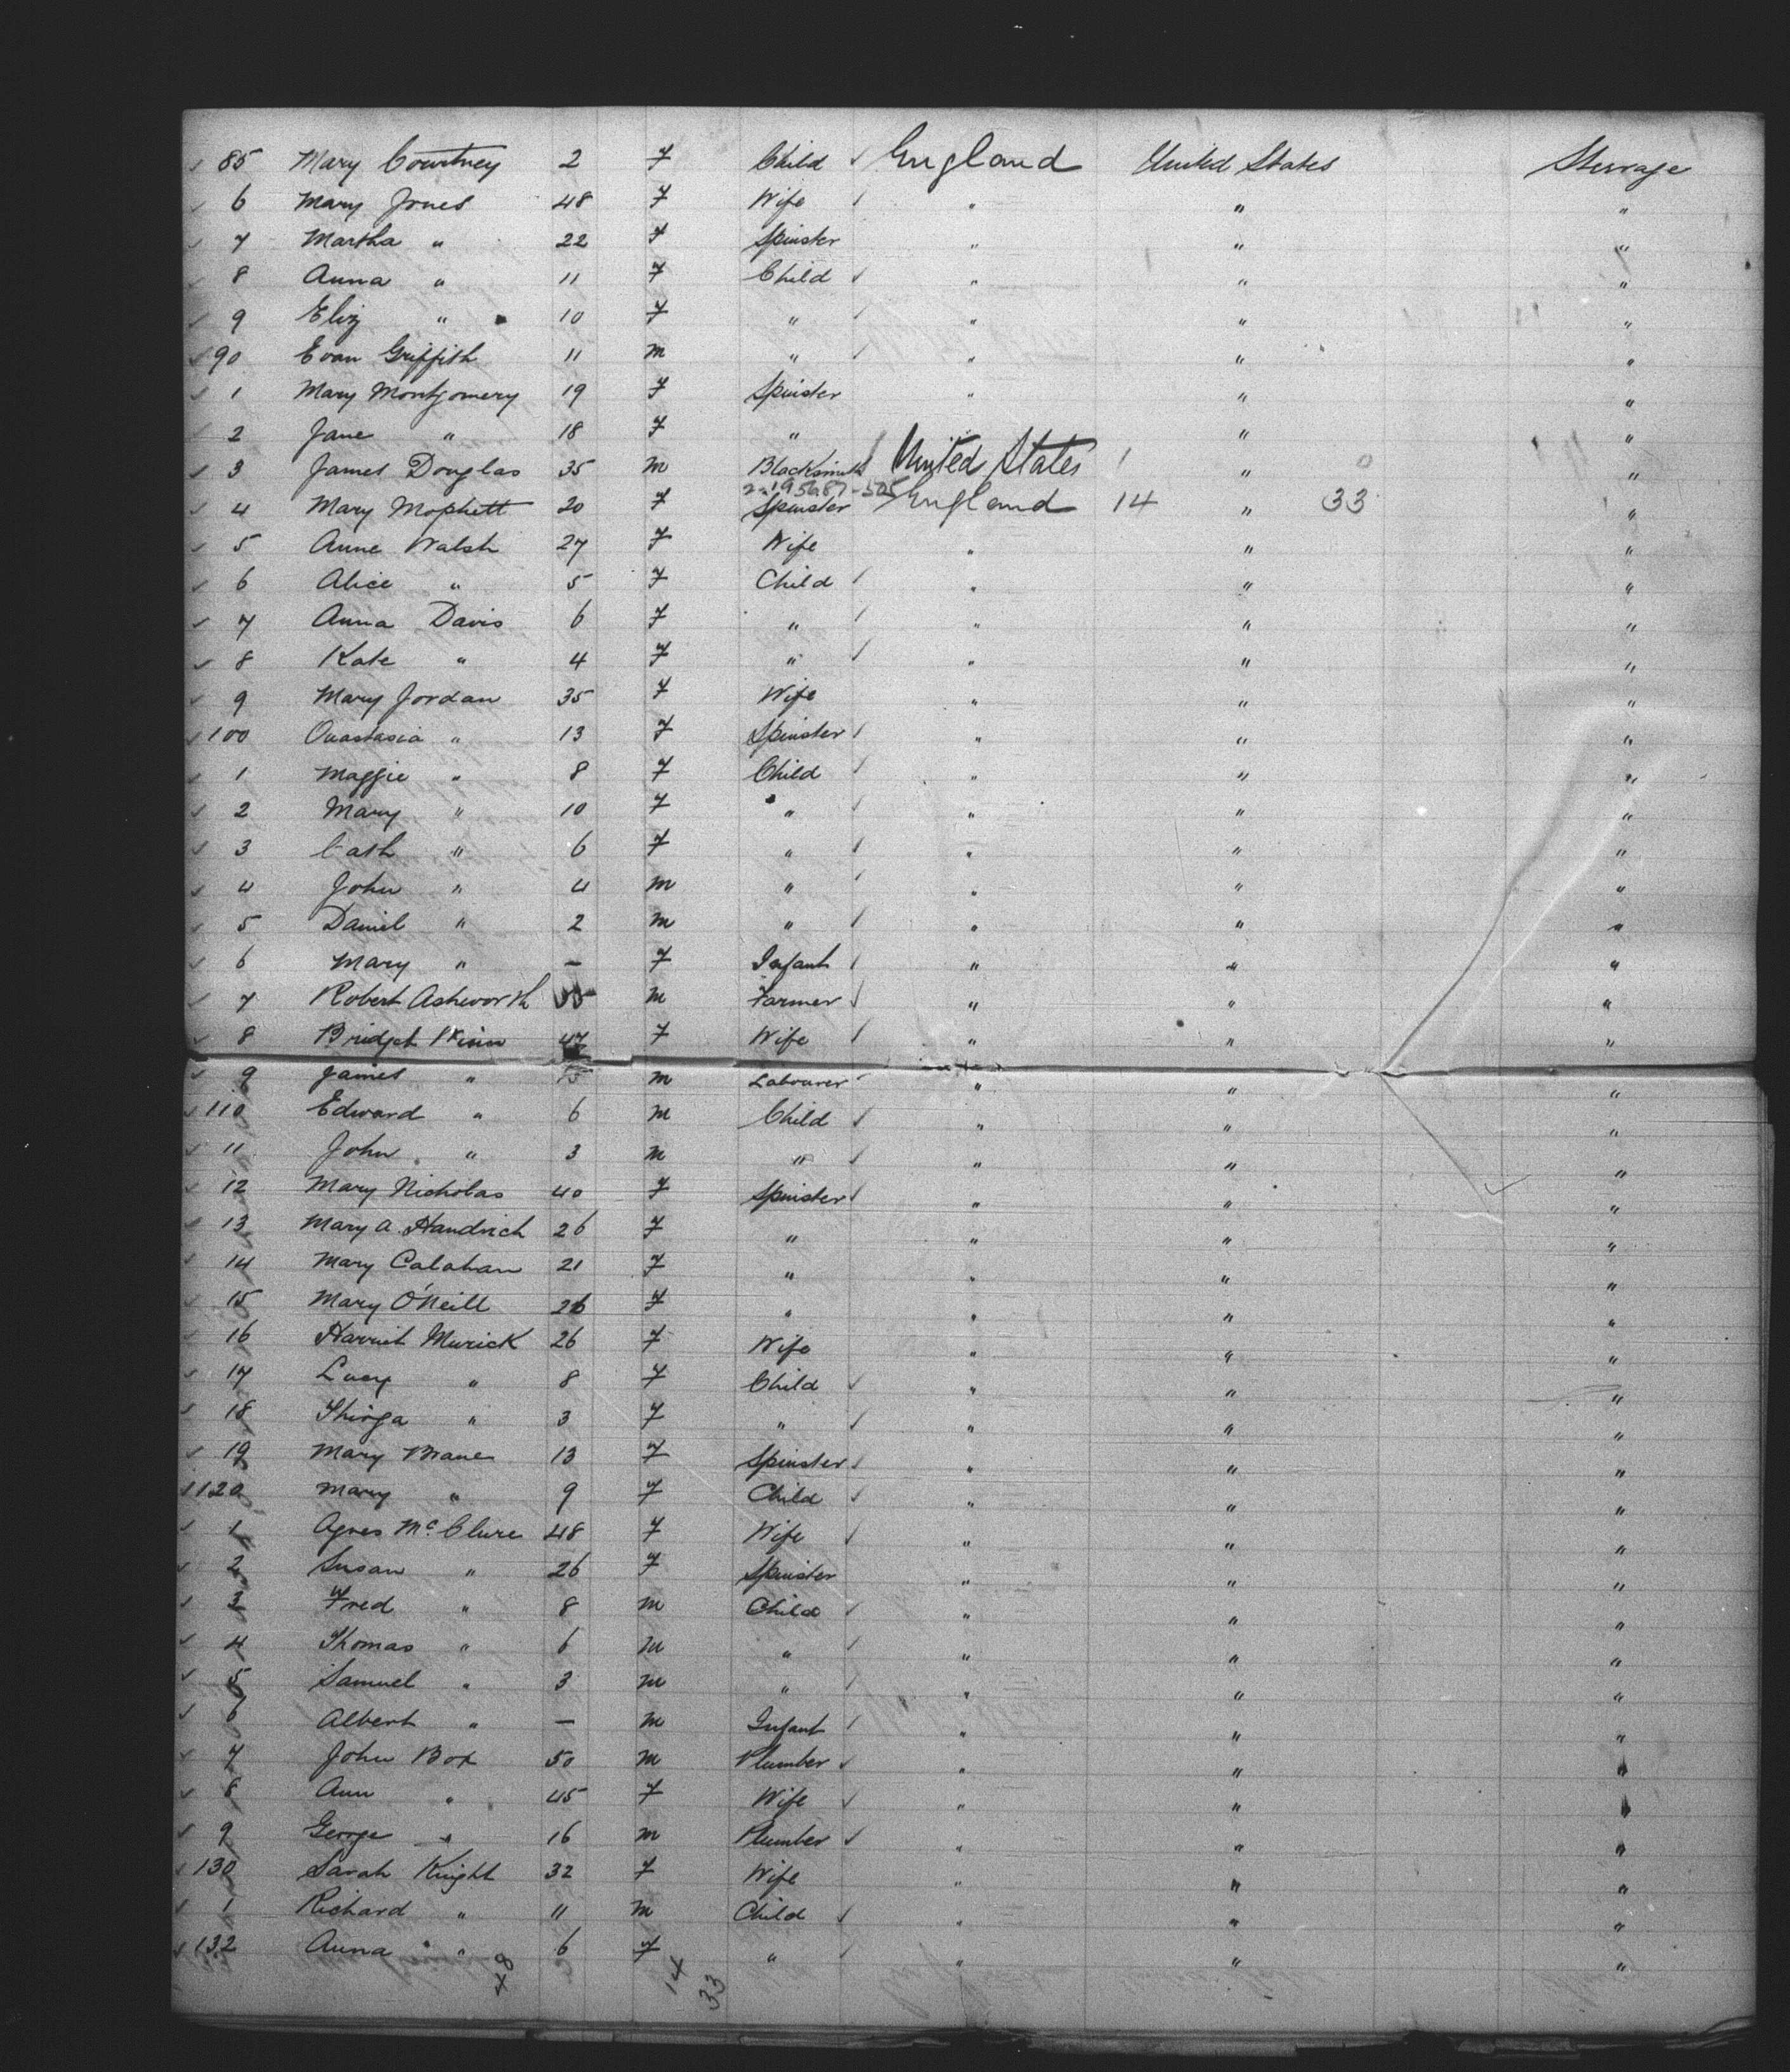 85 Mary Courtney 2 F Child England United States Steerage
6 Mary Jones 48 F Wife " " "
7 Martha " 22 F Spinster " " "
8 Anna " 11 F Child " " "
9 Eliz " 10 F " " " "
90 Evan Griffith 11 M " " " "
1 Mary Montgomery 19 F Spinster " " "
2 Jane " 18 F " " "
3 James Douglas 35 M Blacksmith United States 1 " 0 "
4 Mary Mophett 20 F Spinster England 14 " 33 "
5 Anne Walsh 27 F Wife " " "
6 Alice " 5 F Child " " "
7 Anna Davis 6 F " " " "
8 Kate " 4 F " " " "
9 Mary Jordan 35 F Wife " " "
100 Anastasia " 13 F Spinster " " "
1 Maggie " 8 F Child " " "
2 Mary " 10 F " " " "
3 Cath " 6 F " " " "
4 John " 4 M " " " "
5 Daniel " 2 M " " " "
6 Mary " — F Infant " " "
7 Robert Ashworth M Farmer " " "
8 Bridget 47 F Wife " " "
9 James " M Labourer " " "
110 Edward " 6 M Child " " "
11 John " 3 M " " " "
12 Mary Nicholas 40 F Spinster " " "
13 Mary A. 26 F " " " "
14 Mary Calahan 21 F " " " "
15 Mary O'Neill 26 F " " " "
16 Harriet Murick 26 F Wife " " "
17 Lucy " 8 F Child " " "
18 " 3 F " " " "
19 Mary 13 F Spinster " " "
120 Mary " 9 F Child " " "
1 Agnes McClure 48 F Wife " " "
2 Susan " 26 F Spinster " " "
3 Fred " 8 M Child " " "
4 Thomas " 6 M " " " "
5 Samuel " 3 M " " " "
6 Albert " — M Infant " " "
7 John Box 50 M Plumber " " "
8 Ann " 45 F Wife " " "
9 George " 16 M Plumber " " "
130 Sarah Knight 32 F Wife " " "
1 Richard " 11 M Child " " "
132 Anna " 6 F " " " "
48 14 33